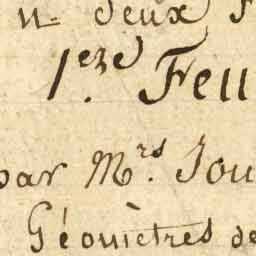 n deux F
1.ere Feu
par Mrs. Jou
Géomètres de